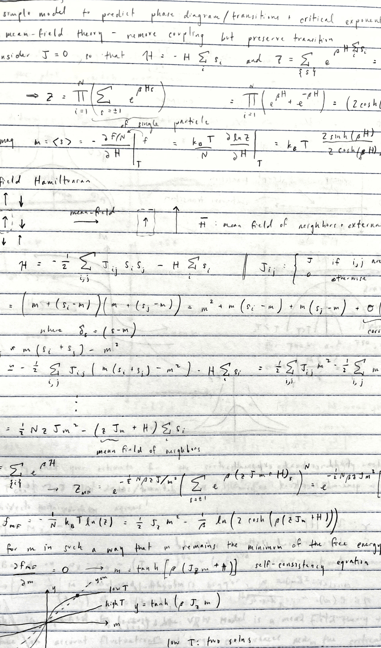 simple model to predict phase diagram/transitions + critical exponen
mean-field theory - remove coupling but preserve transition
nsider J=0 so that H = -H Σ_i s_i and Z = Σ_{s} e^{βH Σ s_i} =
→ Z = ∏_{i=1}^{N} ( Σ_{s=±1} e^{βHs} ) = ∏_{i=1}^{N} ( e^{βH} + e^{-βH} ) = (2cosh(
of single particle
mag m = <s> = - ∂F/N / ∂H |_T = k_B T / N ∂lnZ / ∂H |_T = k_B T 2 sinh(βH) / 2 cosh(βH)
field Hamiltonian
mean-field H̄ : mean field of neighbors + extern
H = -1/2 Σ_{i,j} J_{ij} s_i s_j - H Σ_i s_i | J_{ij} : { J if i,j are
0 otherwise
= (m + (s_i-m))(m + (s_j-m)) = m² + m(s_i-m) + m(s_j-m) + O(
where δ_s = (s-m)
≈ m(s_i + s_j) - m²
= -1/2 Σ_{i,j} J_{ij} ( m(s_i+s_j) - m² ) - H Σ s_i = 1/2 Σ_{i,j} J_{ij} m² - 1/2 Σ_{i,j} m
⋮
= 1/2 N z J m² - (z J m + H) Σ_i s_i
mean field of neighbors
= Σ_{s} e^{βH}
→ Z_MF = e^{-1/2 NβzJm²} ( Σ_{s=±1} e^{β(zJm+H)s} )^N = e^{-1/2 NβzJm²}
f_MF = -1/N k_B T ln(Z) = 1/2 J z m² - 1/β ln(2 cosh(β(zJm+H)))
for m in such a way that m remains the minimum of the free energy
∂f_MF / ∂m = 0 → m = tanh[β(Jzm+H)] self-consistency equation
y
low T
high T y = tanh(βJzm)
m
low T: two solns